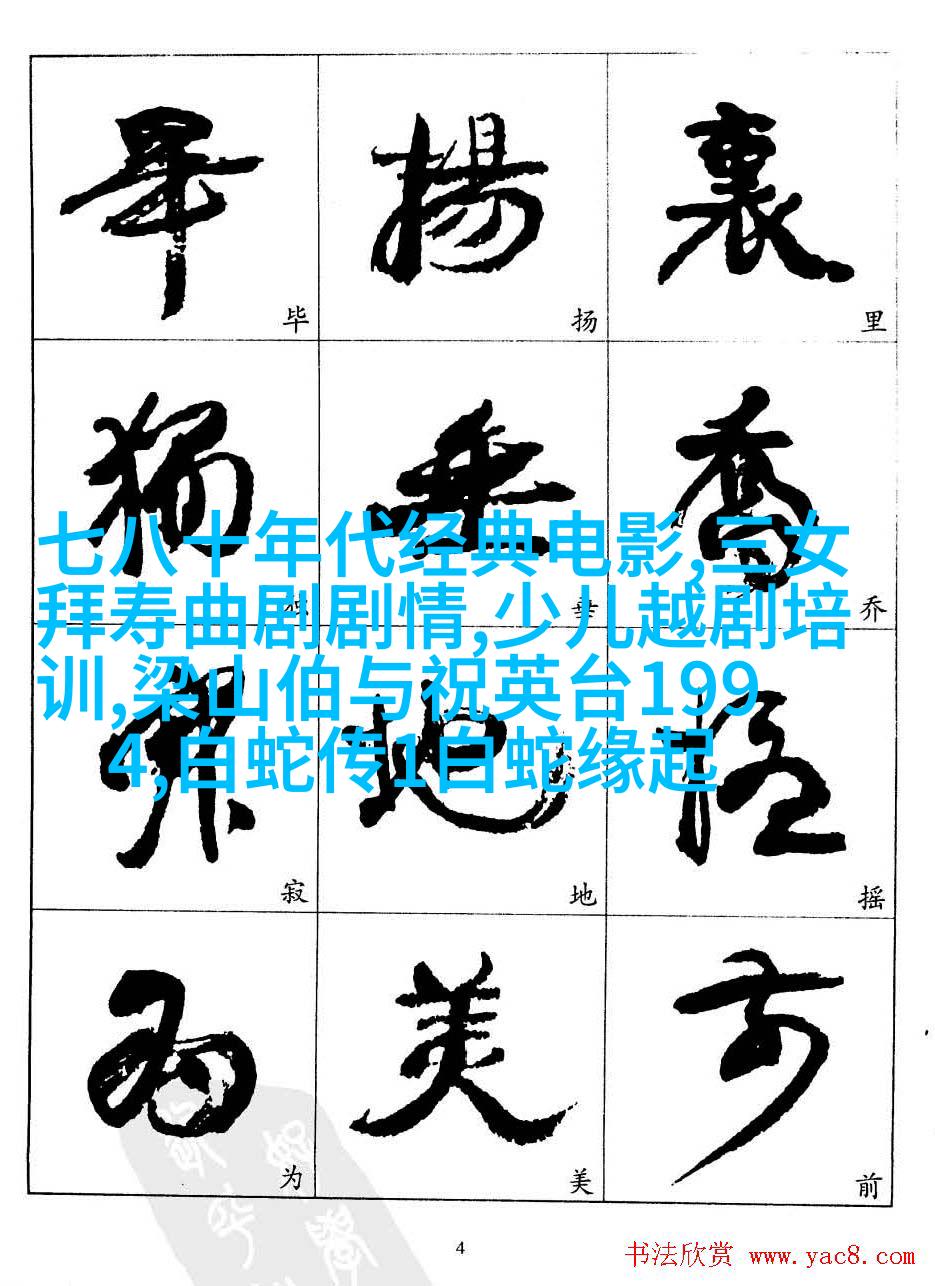 畢 揚 裏
毕 扬 里
獨 垂 喬
独 垂 乔
七八十年代经典电影,三女
拜寿曲剧剧情,少儿越剧培
训,梁山伯与祝英台199
4,白蛇传1白蛇缘起
寂 地 摇
寂 地 摇
为 美 前
为 美 前
4
书法欣赏 www.yac8.com